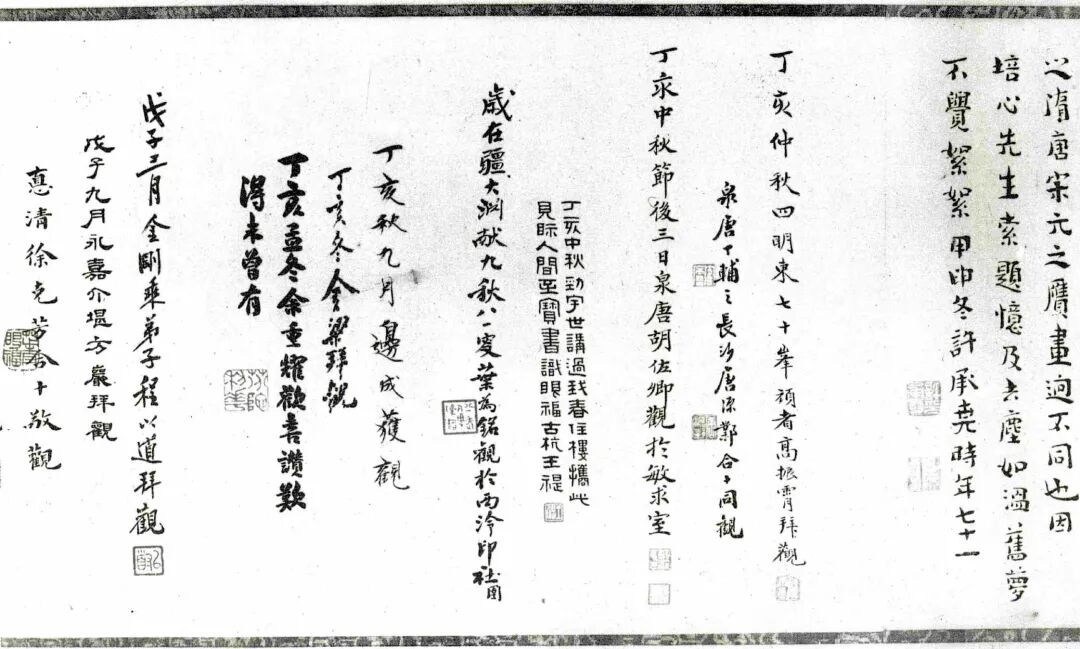 之隋唐宋元之贋畫迥不同也因
培心先生索題憶及去塵如溫舊夢
不覺絮絮甲申冬許承堯時年七十一
丁亥仲秋四明東七十峯頑者高振霄拜觀
泉唐丁輔之長沙唐源鄴合十同觀
丁亥中秋節後三日泉唐胡佐卿觀於敏求室
丁亥中秋勁宇世講過我春住樓攜此
見眎人間至寶書識眼福古杭王禔
歲在彊大淵献九秋八一叟葉為銘觀於西泠印社
丁亥秋九月邊成獲觀
丁亥冬金梁拜觀
丁亥孟冬余重耀歡喜讚歎
得未曾有
戊子三月金剛乘弟子程以道拜觀
戊子九月永嘉介堪方巖拜觀
惪清徐克芳合十敬觀